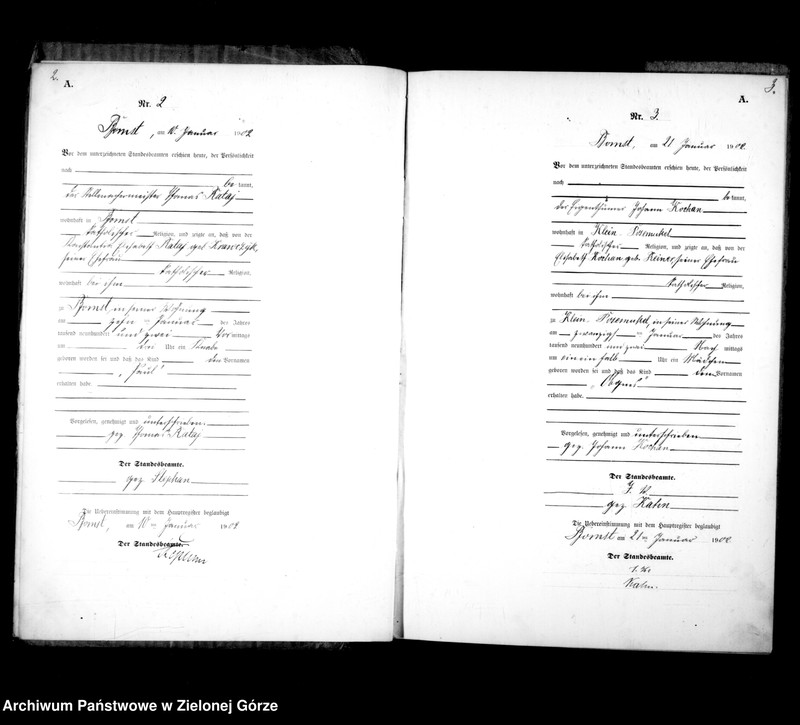 2.
A.
Nr. 2
Bomst, am 10. Januar 1902
Vor dem unterzeichneten Standesbeamten erschien heute, der Persönlichkeit
nach
be kannt,
der Stellmachermeister Thomas Rataj
wohnhaft in Bomst
katholischer Religion, und zeigte an, daß von der
Elisabeth Rataj geb.
seiner Ehefrau
katholischer Religion,
wohnhaft bei ihm
zu Bomst, in seiner Wohnung
am zehn ten Januar des Jahres
tausend neunhundert und zwei Vor mittags
um drei Uhr ein Knabe
geboren worden sei und daß das Kind den Vornamen
"Paul"
erhalten habe.
Vorgelesen, genehmigt und unterschrieben
gez. Thomas Rataj
Der Standesbeamte.
gez. Stephan
Die Uebereinstimmung mit dem Hauptregister beglaubigt
Bomst, am 10ten Januar 1902
Der Standesbeamte.
3.
A.
Nr. 3.
Bomst, am 21 Januar 1902.
Vor dem unterzeichneten Standesbeamten erschien heute, der Persönlichkeit
nach
be kannt,
der Eigenthümer Johann Kochan
wohnhaft in Klein Posemukel
katholischer Religion, und zeigte an, daß von der
Elisabeth Kochan geb. seiner Ehefrau
katholischer Religion,
wohnhaft bei ihm
zu Klein Posemukel, in seiner Wohnung
am zwanzigs ten Januar des Jahres
tausend neunhundert und zwei Nach mittags
um ein ein halb Uhr ein Mädchen
geboren worden sei und daß das Kind den Vornamen
"Agnes"
erhalten habe.
Vorgelesen, genehmigt und unterschrieben
gez. Johann Kochan
Der Standesbeamte.
gez. Kahn
Die Uebereinstimmung mit dem Hauptregister beglaubigt
Bomst am 21ten Januar 1902
Der Standesbeamte.
Kahn.
Archiwum Państwowe w Zielonej Górze